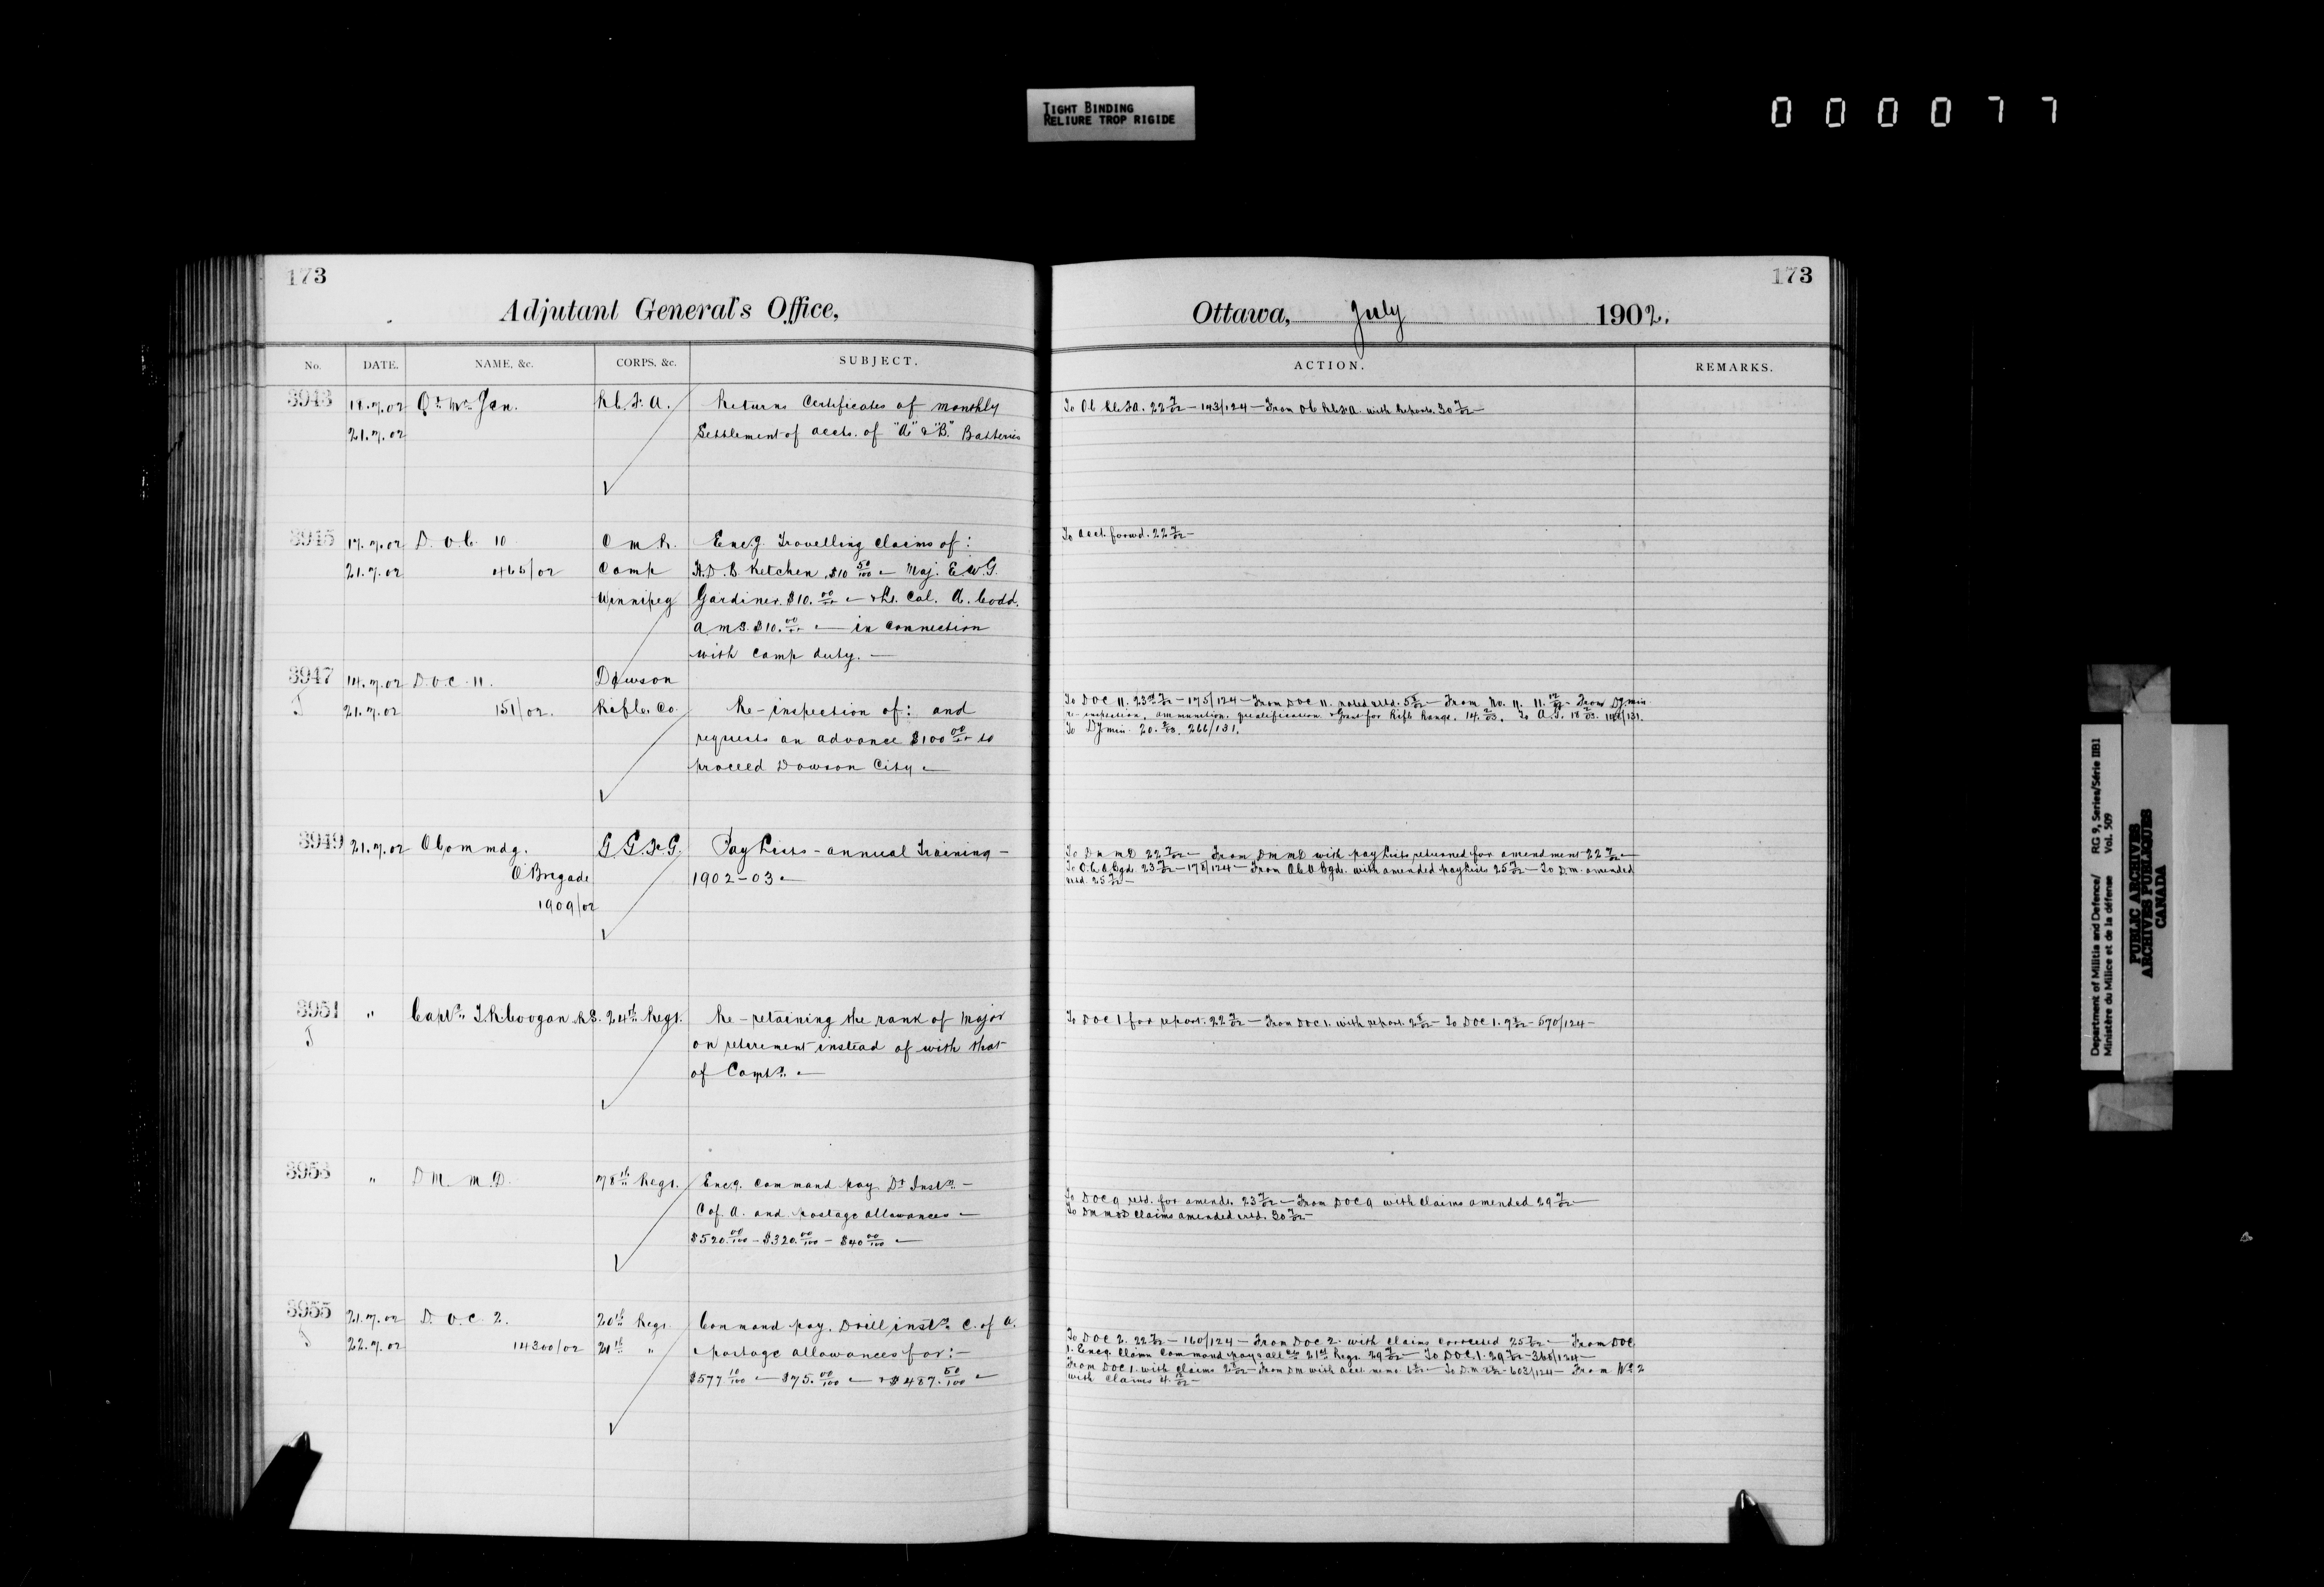 TIGHT BINDING
RELIURE TROP RIGIDE
000077
173
Adjutant General's Office,
No. DATE. NAME, &c. CORPS, &c. SUBJECT.
3943 18.7.02 Qr. Mr. Gen. R.C.F.A. Returns Certificates of monthly
21.7.02 Settlement of accts. of "A" & "B" Batteries
3945 17.7.02 D.O.C. 10 C M R. Encg. Travelling claims of:
21.7.02 465/02 Camp H.D.B. Ketchen, $10 50/100 — Maj. E.W.G.
Winnipeg Gardiner. $10. 00/xx — & Lt. Col. A. Codd.
A.M.S. $10. 00/xx — in connection
with camp duty. —
3947 14.7.02 D.O.C. 11. Dawson
J 21.7.02 151/02. Rifle. Co. Re-inspection of: and
requests an advance $100 00/xx to
proceed Dawson City —
3949 21.7.02 O Commdg. G.G.F.G. Pay Lists - annual Training -
O'Brigade 1902-03 —
1909/02
3951 " Captn. T.R. Coogan R.S. 24th Regt. Re-retaining the rank of Major
J on retirement instead of with that
of Captn. —
3953 " D M. M.D. 78th Regt. Encg. command pay Dl Instn. —
C of A. and postage allowances —
$520. 00/100 - $320. 00/100 - $40 00/100 —
3955 21.7.02 D.O.C. 2. 20th Regt. Command pay. Drill instn. C. of A.
J 22.7.02 14300/02 21st " & postage allowances for:-
$577 10/100 — $75. 00/100 — & $487. 50/100 —
173
Ottawa, July 1902.
ACTION. REMARKS.
To OC RCFA. 22 7/02 — 143/124 — From OC RCFA. with Reports. 30 7/02 —
To Acct. forwd. 22 7/02 —
To DOC 11. 23rd 7/02 — 175/124 — From DOC 11. noted retd. 5 8/02 — From No. 11. 11. 12/02 — From Dy. min
re-inspection, ammunition, qualification & Grant for Rifle Range. 14. 2/03. To A.G. 18 2/03. /131.
To Dy min. 20. 2/03. 266/131.
To Dm mD 22 7/02 — From DmmD with pay Lists returned for amendment 22 7/02 —
To O.C. O. Bgde. 23 7/02 — 178/124 — From OC O Bgde. with amended pay Lists 25 7/02 — To D.m. amended
retd. 25 7/02 —
To DOC 1 for report. 22 7/02 — From DOC 1. with report. 2 8/02 — To DOC 1. 9 8/02 - 570/124 —
To DOC 9 retd. for amendt. 23 7/02 — From DOC 9 with claims amended 29 7/02 —
To Dm mD claims amended retd. 30 7/02 —
To DOC 2. 22 7/02 — 160/124 — From DOC 2. with claims corrected 25 7/02 — From DOC
1. Encg. claim command pay & all ces 21st Regt. 29 7/02 — To DOC 1. 29 7/02 - 360/124 —
From DOC 1. with claims 2 8/02 — From DM with acct. memo. 6 8/02 — To D.m. - 603/124 — From No. 2
with claims 4. 12/02 —
Department of Militia and Defence/ RG 9, Series/Série IIB1
Ministère du Milice et de la défense Vol. 509
PUBLIC ARCHIVES
ARCHIVES PUBLIQUES
CANADA